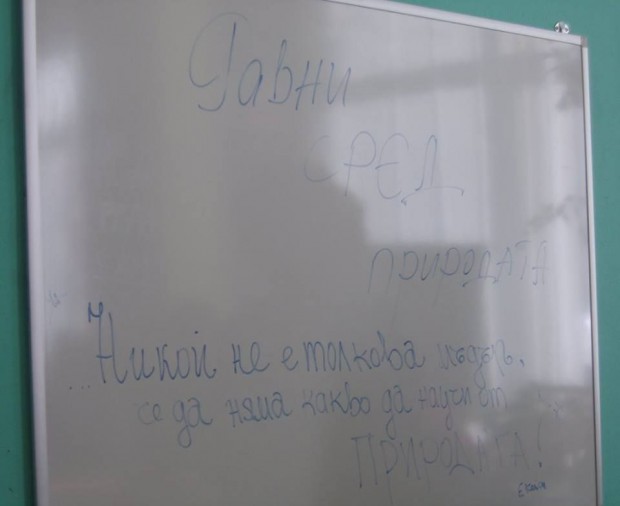 Равни
СРЕД
ПРИРОДАТА
"Никой не е толкова мъдър,
че да няма какво да научи от
ПРИРОДАТА!